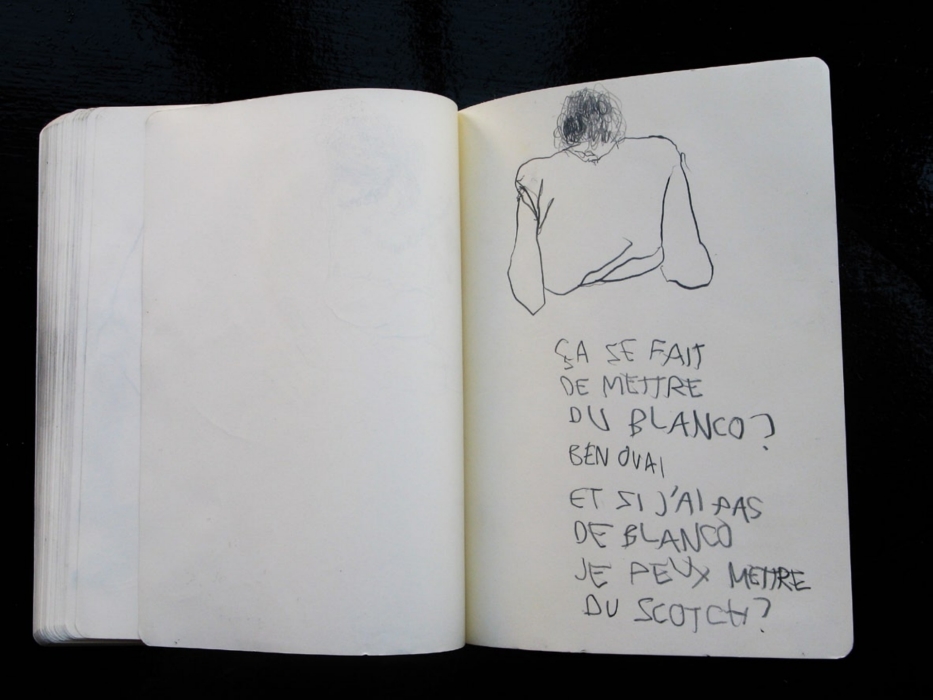 ÇA SE FAIT
DE METTRE
DU BLANCO?
BEN OUAI
ET SI J'AI PAS
DE BLANCO
JE PEUX METTRE
DU SCOTCH?